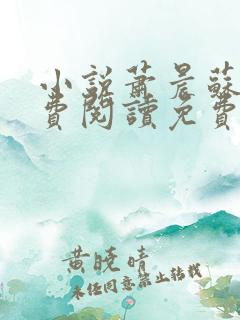 小説蕭晨蘇
費閱讀免費
黄曉晴
未经同意禁止转载